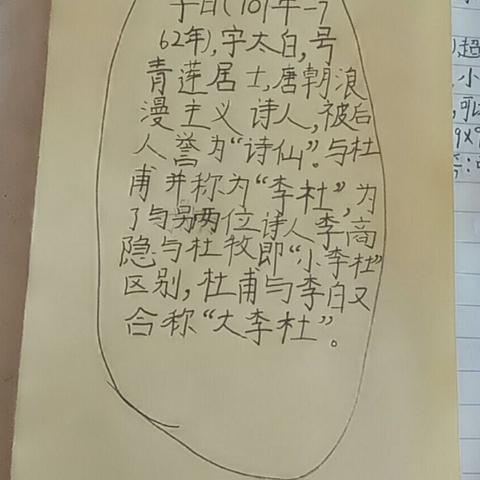 李白(701年—7
62年),字太白,号
青莲居士,唐朝浪
漫主义诗人,被后
人誉为“诗仙”。与杜
甫并称为“李杜”,为
了与另两位诗人李商
隐与杜牧即“小李杜”
区别,杜甫与李白又
合称“大李杜”。
超
小
可以
9×9